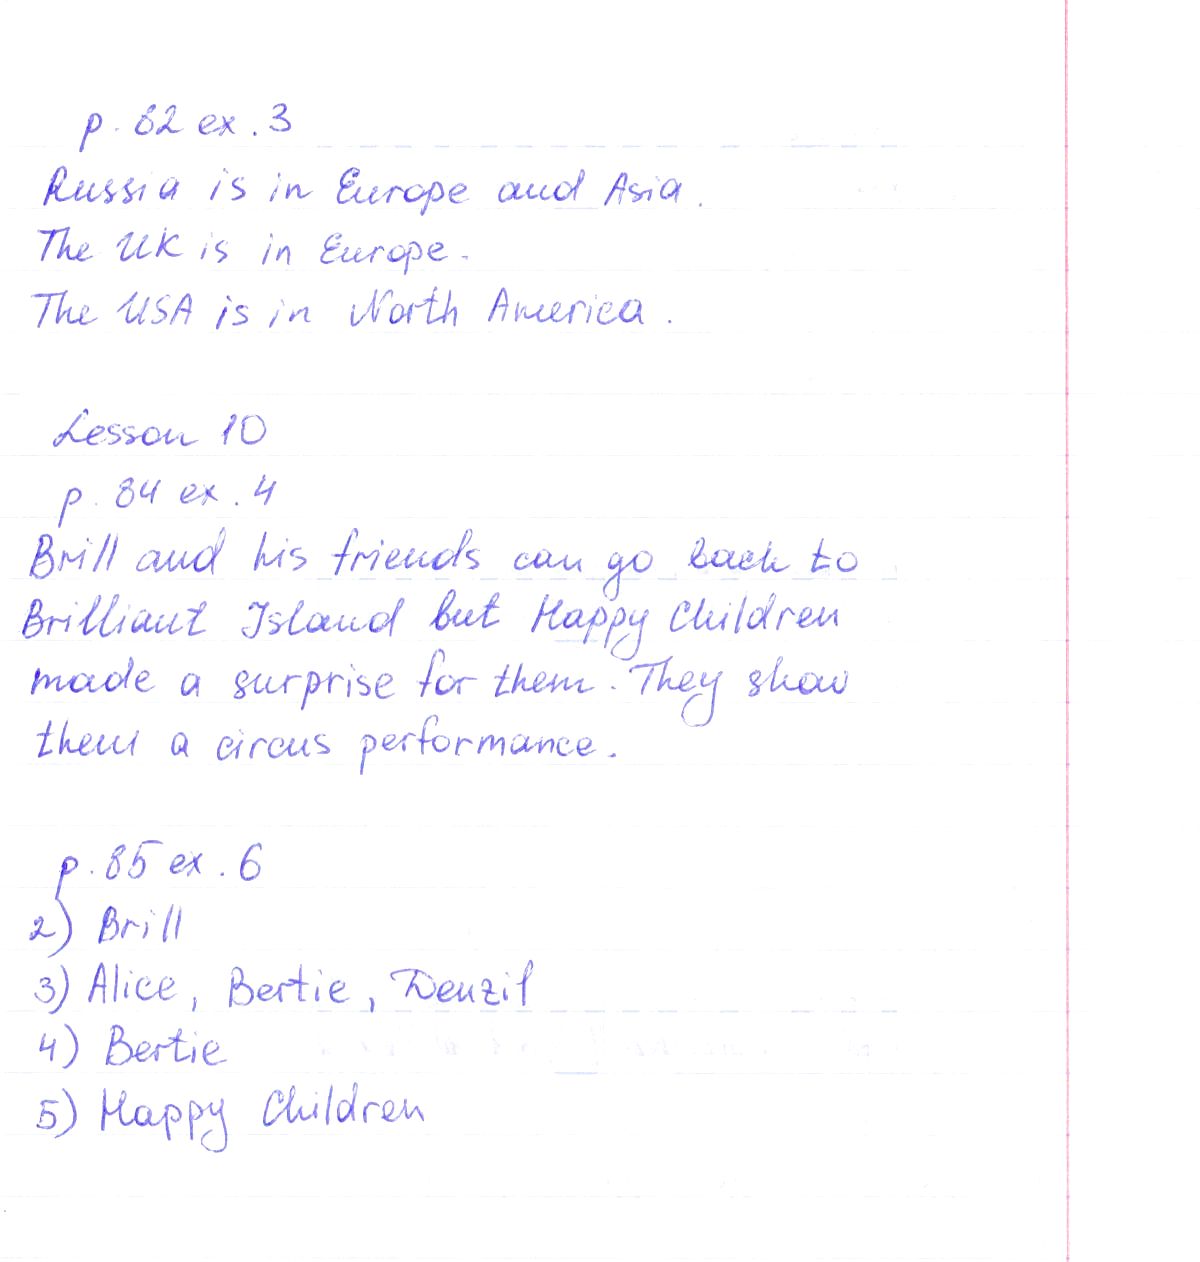 p. 82 ex. 3
Russia is in Europe and Asia.
The UK is in Europe.
The USA is in North America.
Lesson 10
p. 84 ex. 4
Brill and his friends can go back to
Brilliant Island but Happy Children
made a surprise for them. They show
them a circus performance.
p. 85 ex. 6
2) Brill
3) Alice, Bertie, Denzil
4) Bertie
5) Happy Children